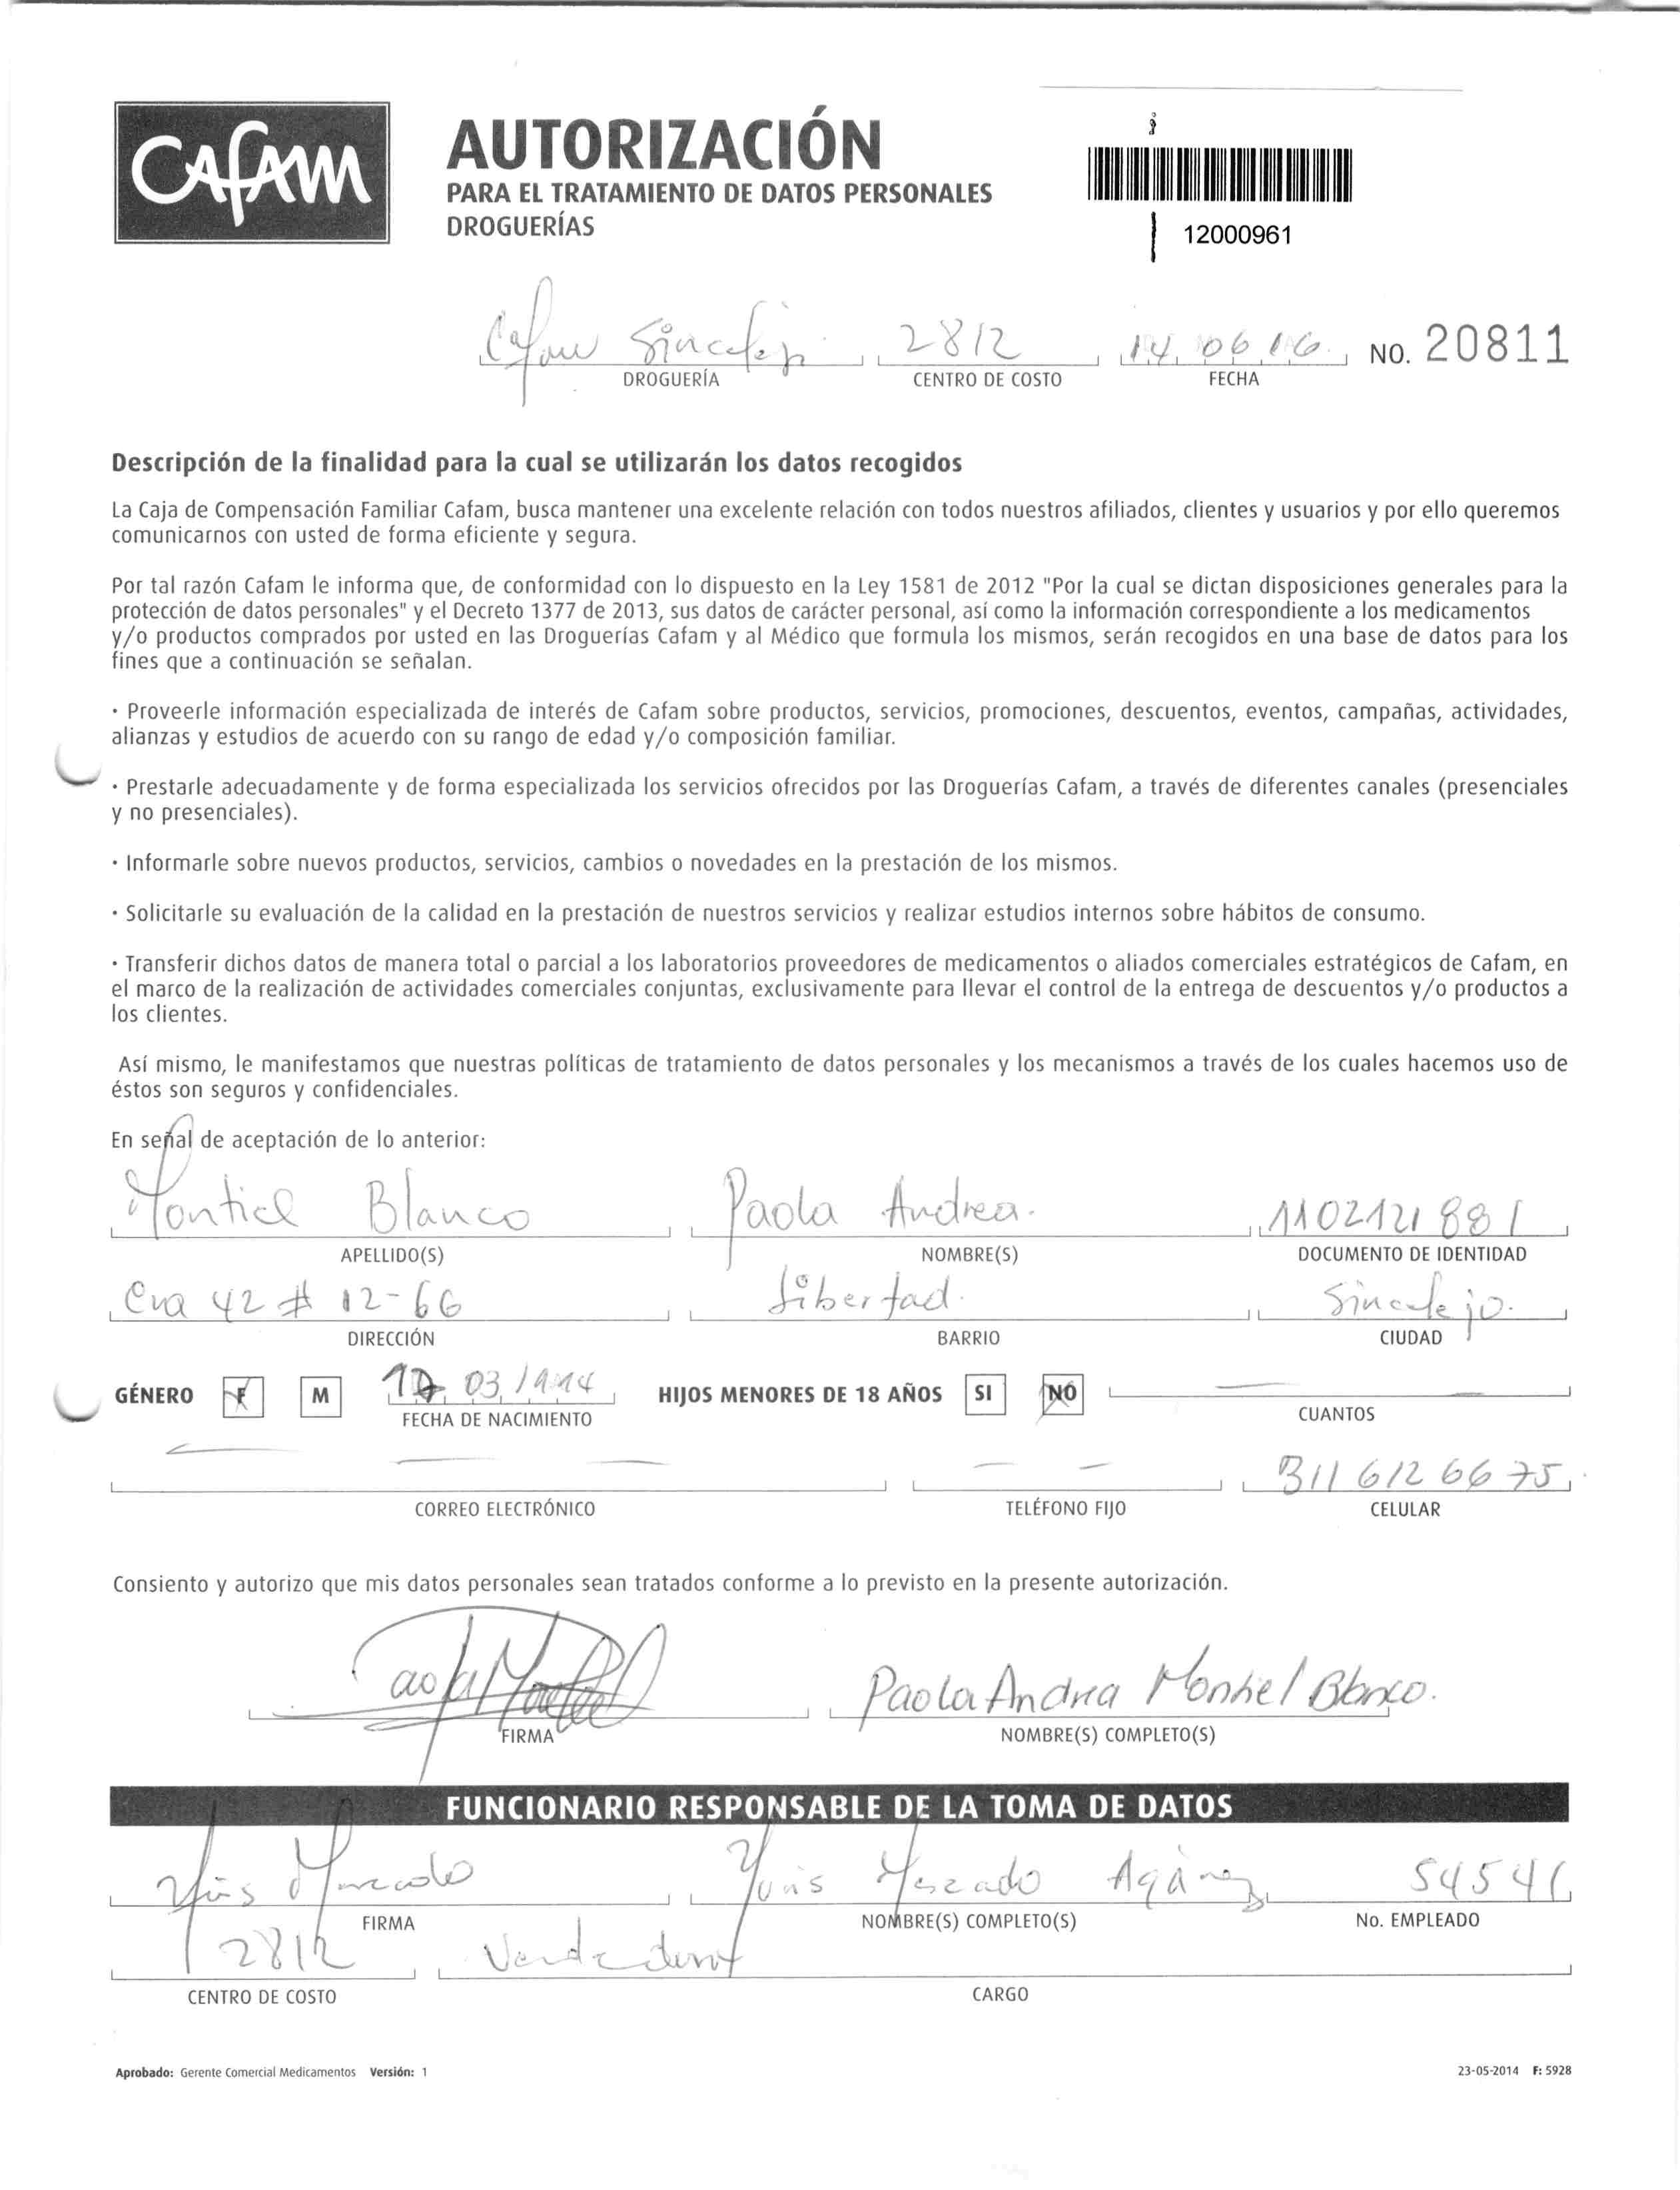 Cafam
AUTORIZACIÓN
PARA EL TRATAMIENTO DE DATOS PERSONALES
DROGUERÍAS
12000961
Cafam Sincelejo 2812 14 06 16 NO. 20811
DROGUERÍA CENTRO DE COSTO FECHA
Descripción de la finalidad para la cual se utilizarán los datos recogidos
La Caja de Compensación Familiar Cafam, busca mantener una excelente relación con todos nuestros afiliados, clientes y usuarios y por ello queremos
comunicarnos con usted de forma eficiente y segura.
Por tal razón Cafam le informa que, de conformidad con lo dispuesto en la Ley 1581 de 2012 "Por la cual se dictan disposiciones generales para la
protección de datos personales" y el Decreto 1377 de 2013, sus datos de carácter personal, así como la información correspondiente a los medicamentos
y/o productos comprados por usted en las Droguerías Cafam y al Médico que formula los mismos, serán recogidos en una base de datos para los
fines que a continuación se señalan.
· Proveerle información especializada de interés de Cafam sobre productos, servicios, promociones, descuentos, eventos, campañas, actividades,
alianzas y estudios de acuerdo con su rango de edad y/o composición familiar.
· Prestarle adecuadamente y de forma especializada los servicios ofrecidos por las Droguerías Cafam, a través de diferentes canales (presenciales
y no presenciales).
· Informarle sobre nuevos productos, servicios, cambios o novedades en la prestación de los mismos.
· Solicitarle su evaluación de la calidad en la prestación de nuestros servicios y realizar estudios internos sobre hábitos de consumo.
· Transferir dichos datos de manera total o parcial a los laboratorios proveedores de medicamentos o aliados comerciales estratégicos de Cafam, en
el marco de la realización de actividades comerciales conjuntas, exclusivamente para llevar el control de la entrega de descuentos y/o productos a
los clientes.
Así mismo, le manifestamos que nuestras políticas de tratamiento de datos personales y los mecanismos a través de los cuales hacemos uso de
éstos son seguros y confidenciales.
En señal de aceptación de lo anterior:
Montiel Blanco Paola Andrea. 1102121881
APELLIDO(S) NOMBRE(S) DOCUMENTO DE IDENTIDAD
Cra 42 # 12-66 Libertad. Sincelejo.
DIRECCIÓN BARRIO CIUDAD
GÉNERO F M 03 HIJOS MENORES DE 18 AÑOS SI NO
FECHA DE NACIMIENTO CUANTOS
311 612 66 75
CORREO ELECTRÓNICO TELÉFONO FIJO CELULAR
Consiento y autorizo que mis datos personales sean tratados conforme a lo previsto en la presente autorización.
Paola Andrea Montiel Blanco.
FIRMA NOMBRE(S) COMPLETO(S)
FUNCIONARIO RESPONSABLE DE LA TOMA DE DATOS
Mercado 54541
FIRMA NOMBRE(S) COMPLETO(S) No. EMPLEADO
2812
CENTRO DE COSTO CARGO
Aprobado: Gerente Comercial Medicamentos Versión: 1 23-05-2014 F: 5928